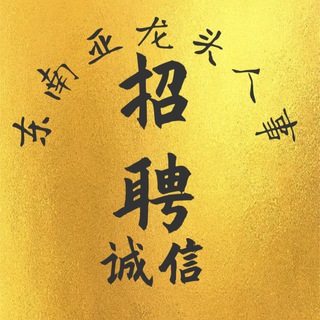 东南亚龙头人事
招聘
诚信